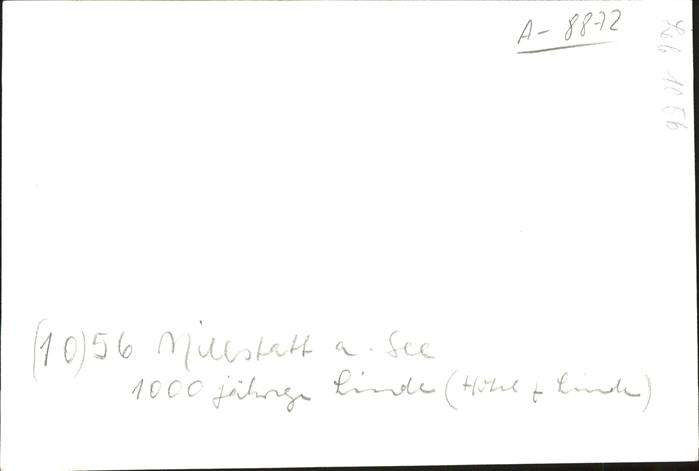 A-8872
1056
(10)56 Millstatt a. See
1000 jährige Linde (Hotel z Linde)